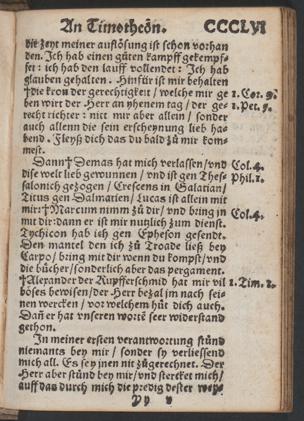 An Timotheon. CCCLVI
die zeyt meiner auflösung ist schon vorhan
den. Ich hab einen güten kampff gekempf-
fet: ich hab den lauff vollendet: Ich hab
glauben gehalten. Hinfür ist mir behalten
†die kron der gerechtigkeit / welche mir ge 1. Cor. 9.
ben wirt der Herr an yhenem tag / der ge- 1. Pet. 5.
recht richter: nit mir aber allein / sonder
auch allenn die sein erscheynung lieb ha-
bend. Fleyß dich das du bald zů mir kom-
mest.
Dann†Demas hat mich verlassen / vnd Col. 4.
dise welt lieb gewunnen / vnd ist gen Thes- Phil. 1.
salonich gezogen / Crescens in Galatian /
Titus gen Dalmatien / Lucas ist allein mit
mir:†Marcum nimm zů dir / vnd bring in Col. 4.
mit dir: dann er ist mir nutzlich zum dienst.
Tychicon hab ich gen Epheson gesendt.
Den mantel den ich zů Troade ließ bey
Carpo / bring mit dir wenn du kompst / vnd
die bücher / sonderlich aber das pergament.
†Alexander der Kupfferschmid hat mir vil 1. Tim. 1.
böses bewisen / der Herr bezal jm nach sei-
nen wercken / vor welchem hüt dich auch.
Dañ er hat vnseren wortē seer widerstand
gethon.
In meiner ersten verantwortung stůnd
niemants bey mir / sonder sy verliessend
mich all. Es sey jnen nit zůgerechnet. Der
Herr aber stůnd bey mir / vnd stercket mich /
auff das durch mich die predig dester
Yy v